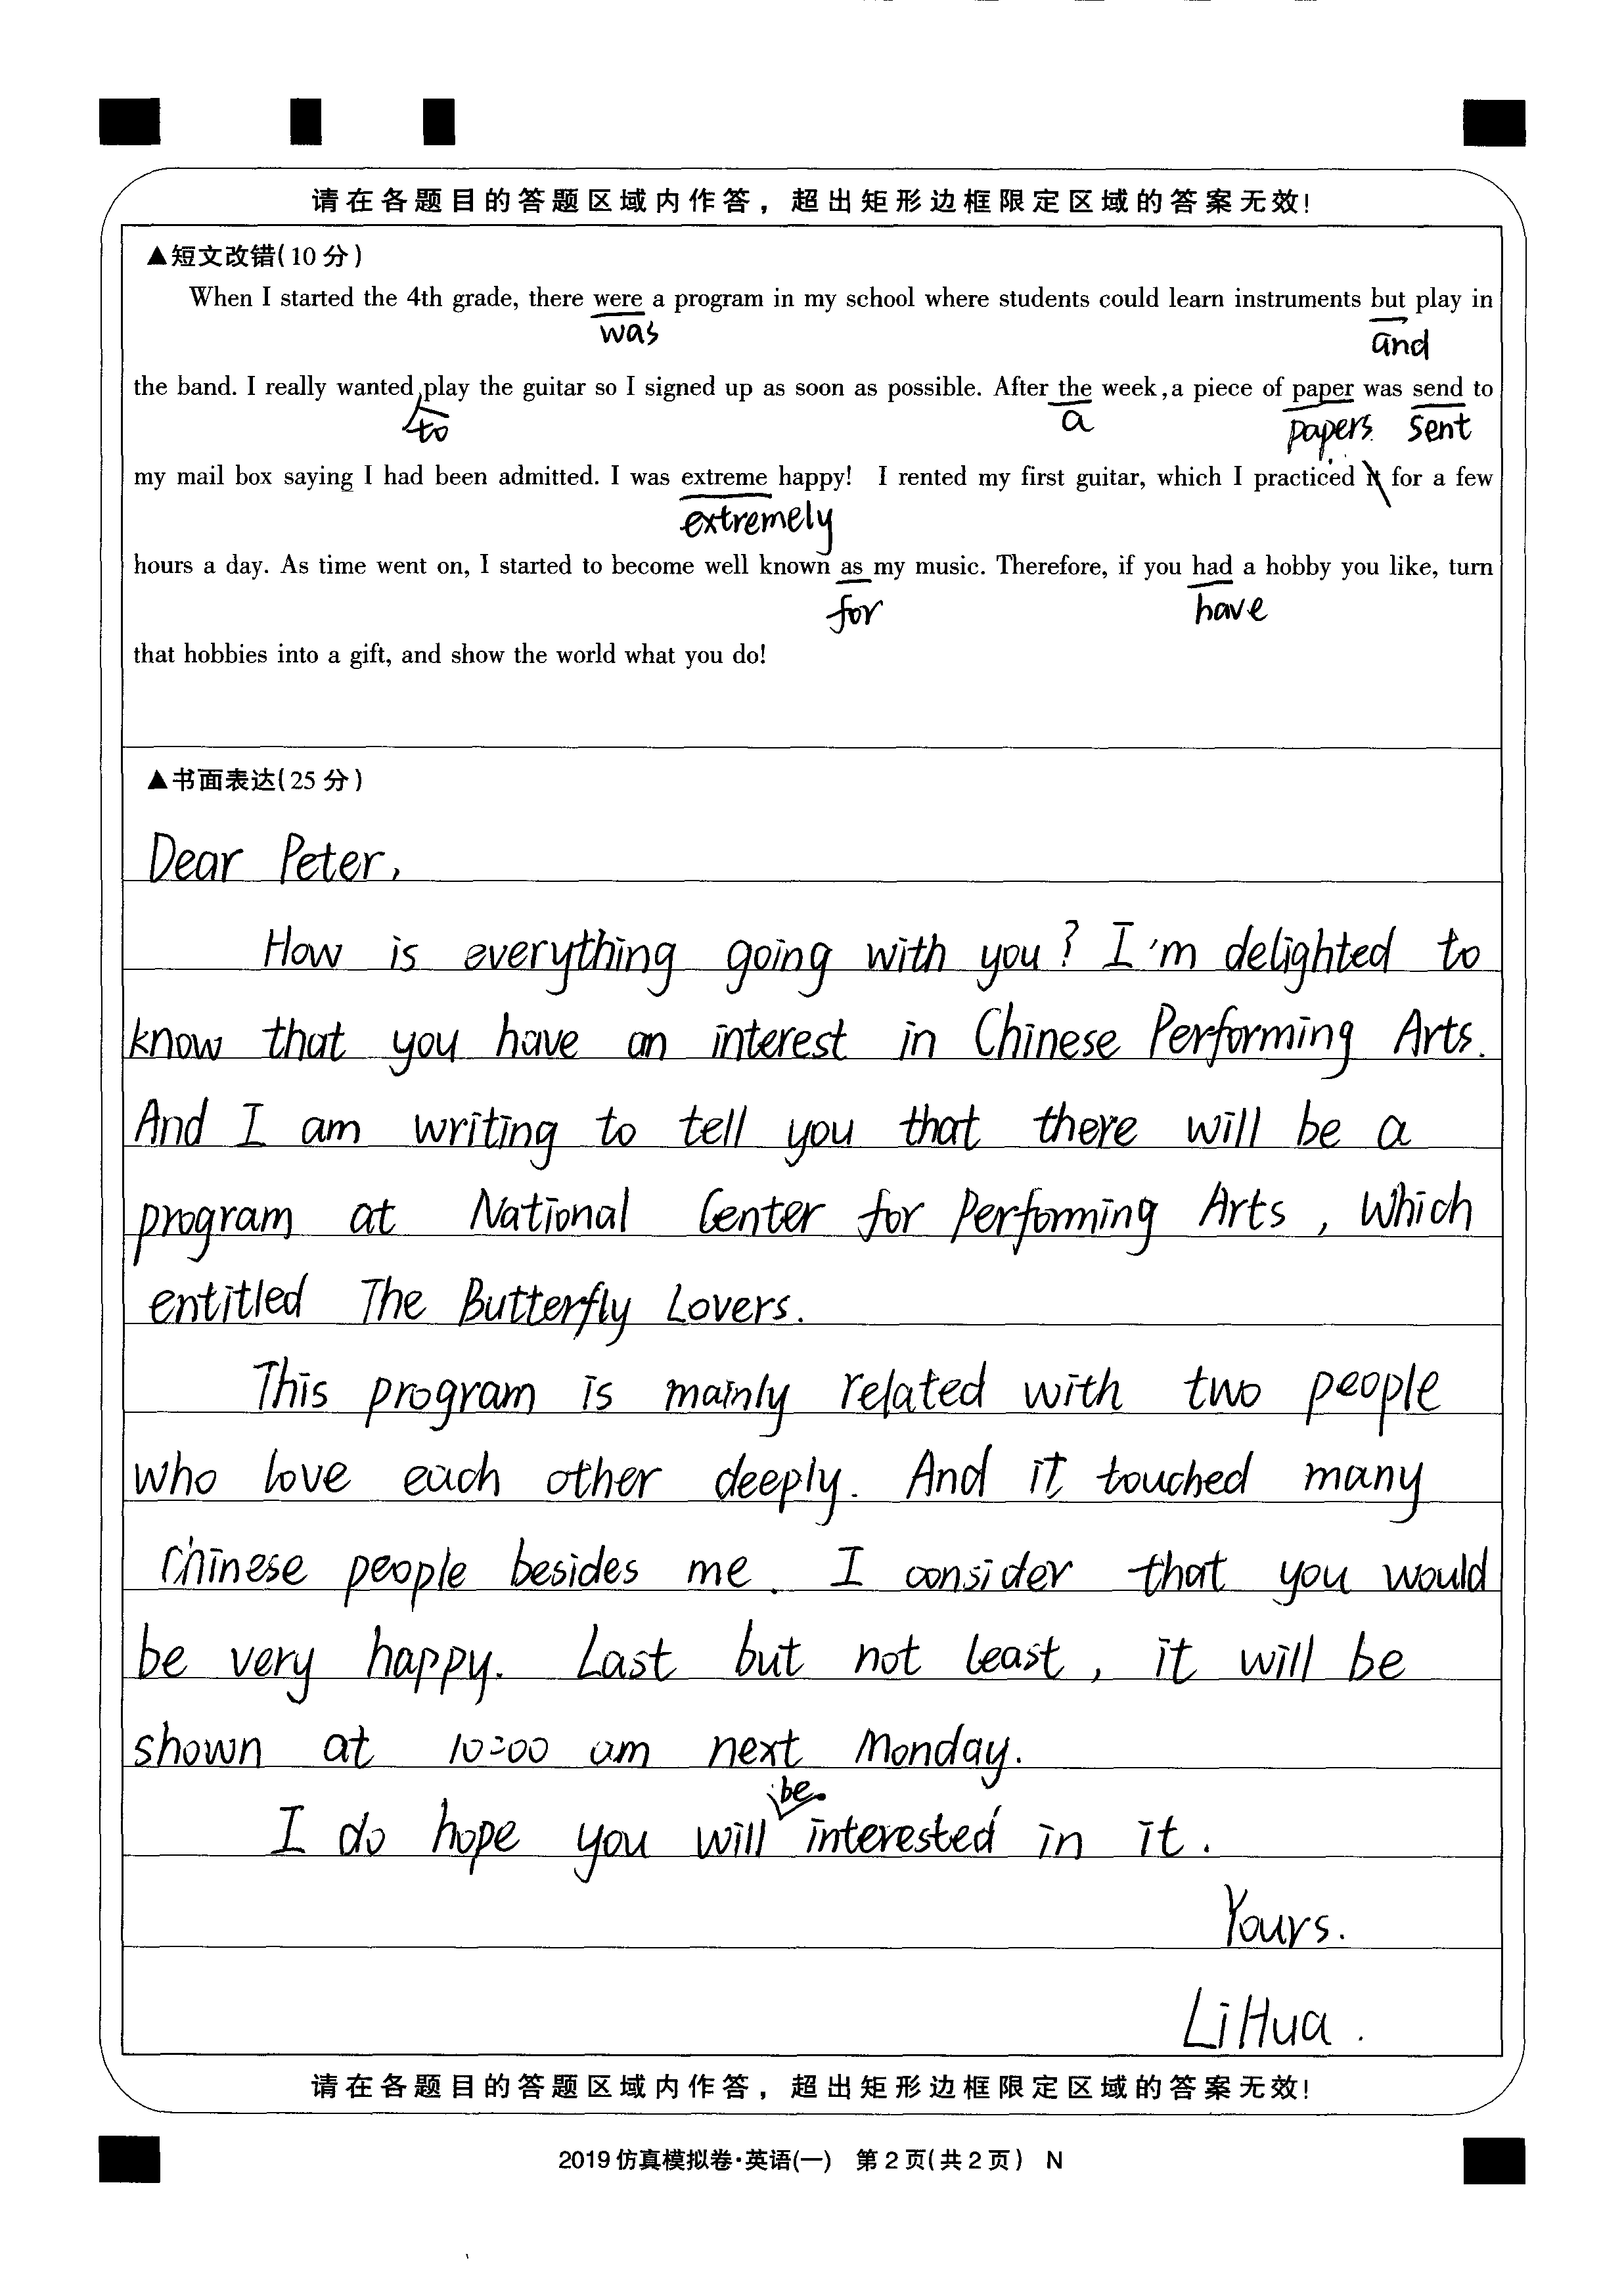 请在各题目的答题区域内作答，超出矩形边框限定区域的答案无效!
▲短文改错(10分)
When I started the 4th grade, there were a program in my school where students could learn instruments but play in
was and
the band. I really wanted play the guitar so I signed up as soon as possible. After the week, a piece of paper was send to
to a papers sent
my mail box saying I had been admitted. I was extreme happy! I rented my first guitar, which I practiced it for a few
extremely
hours a day. As time went on, I started to become well known as my music. Therefore, if you had a hobby you like, turn
for have
that hobbies into a gift, and show the world what you do!
▲书面表达(25分)
Dear Peter,
How is everything going with you? I'm delighted to
know that you have an interest in Chinese Performing Arts.
And I am writing to tell you that there will be a
program at National Center for Performing Arts, which
entitled The Butterfly Lovers.
This program is mainly related with two people
who love each other deeply. And it touched many
Chinese people besides me. I consider that you would
be very happy. Last but not least, it will be
shown at 10:00 am next Monday.
be
I do hope you will interested in it.
Yours.
Li Hua.
请在各题目的答题区域内作答，超出矩形边框限定区域的答案无效!
2019仿真模拟卷·英语(一) 第2页(共2页) N